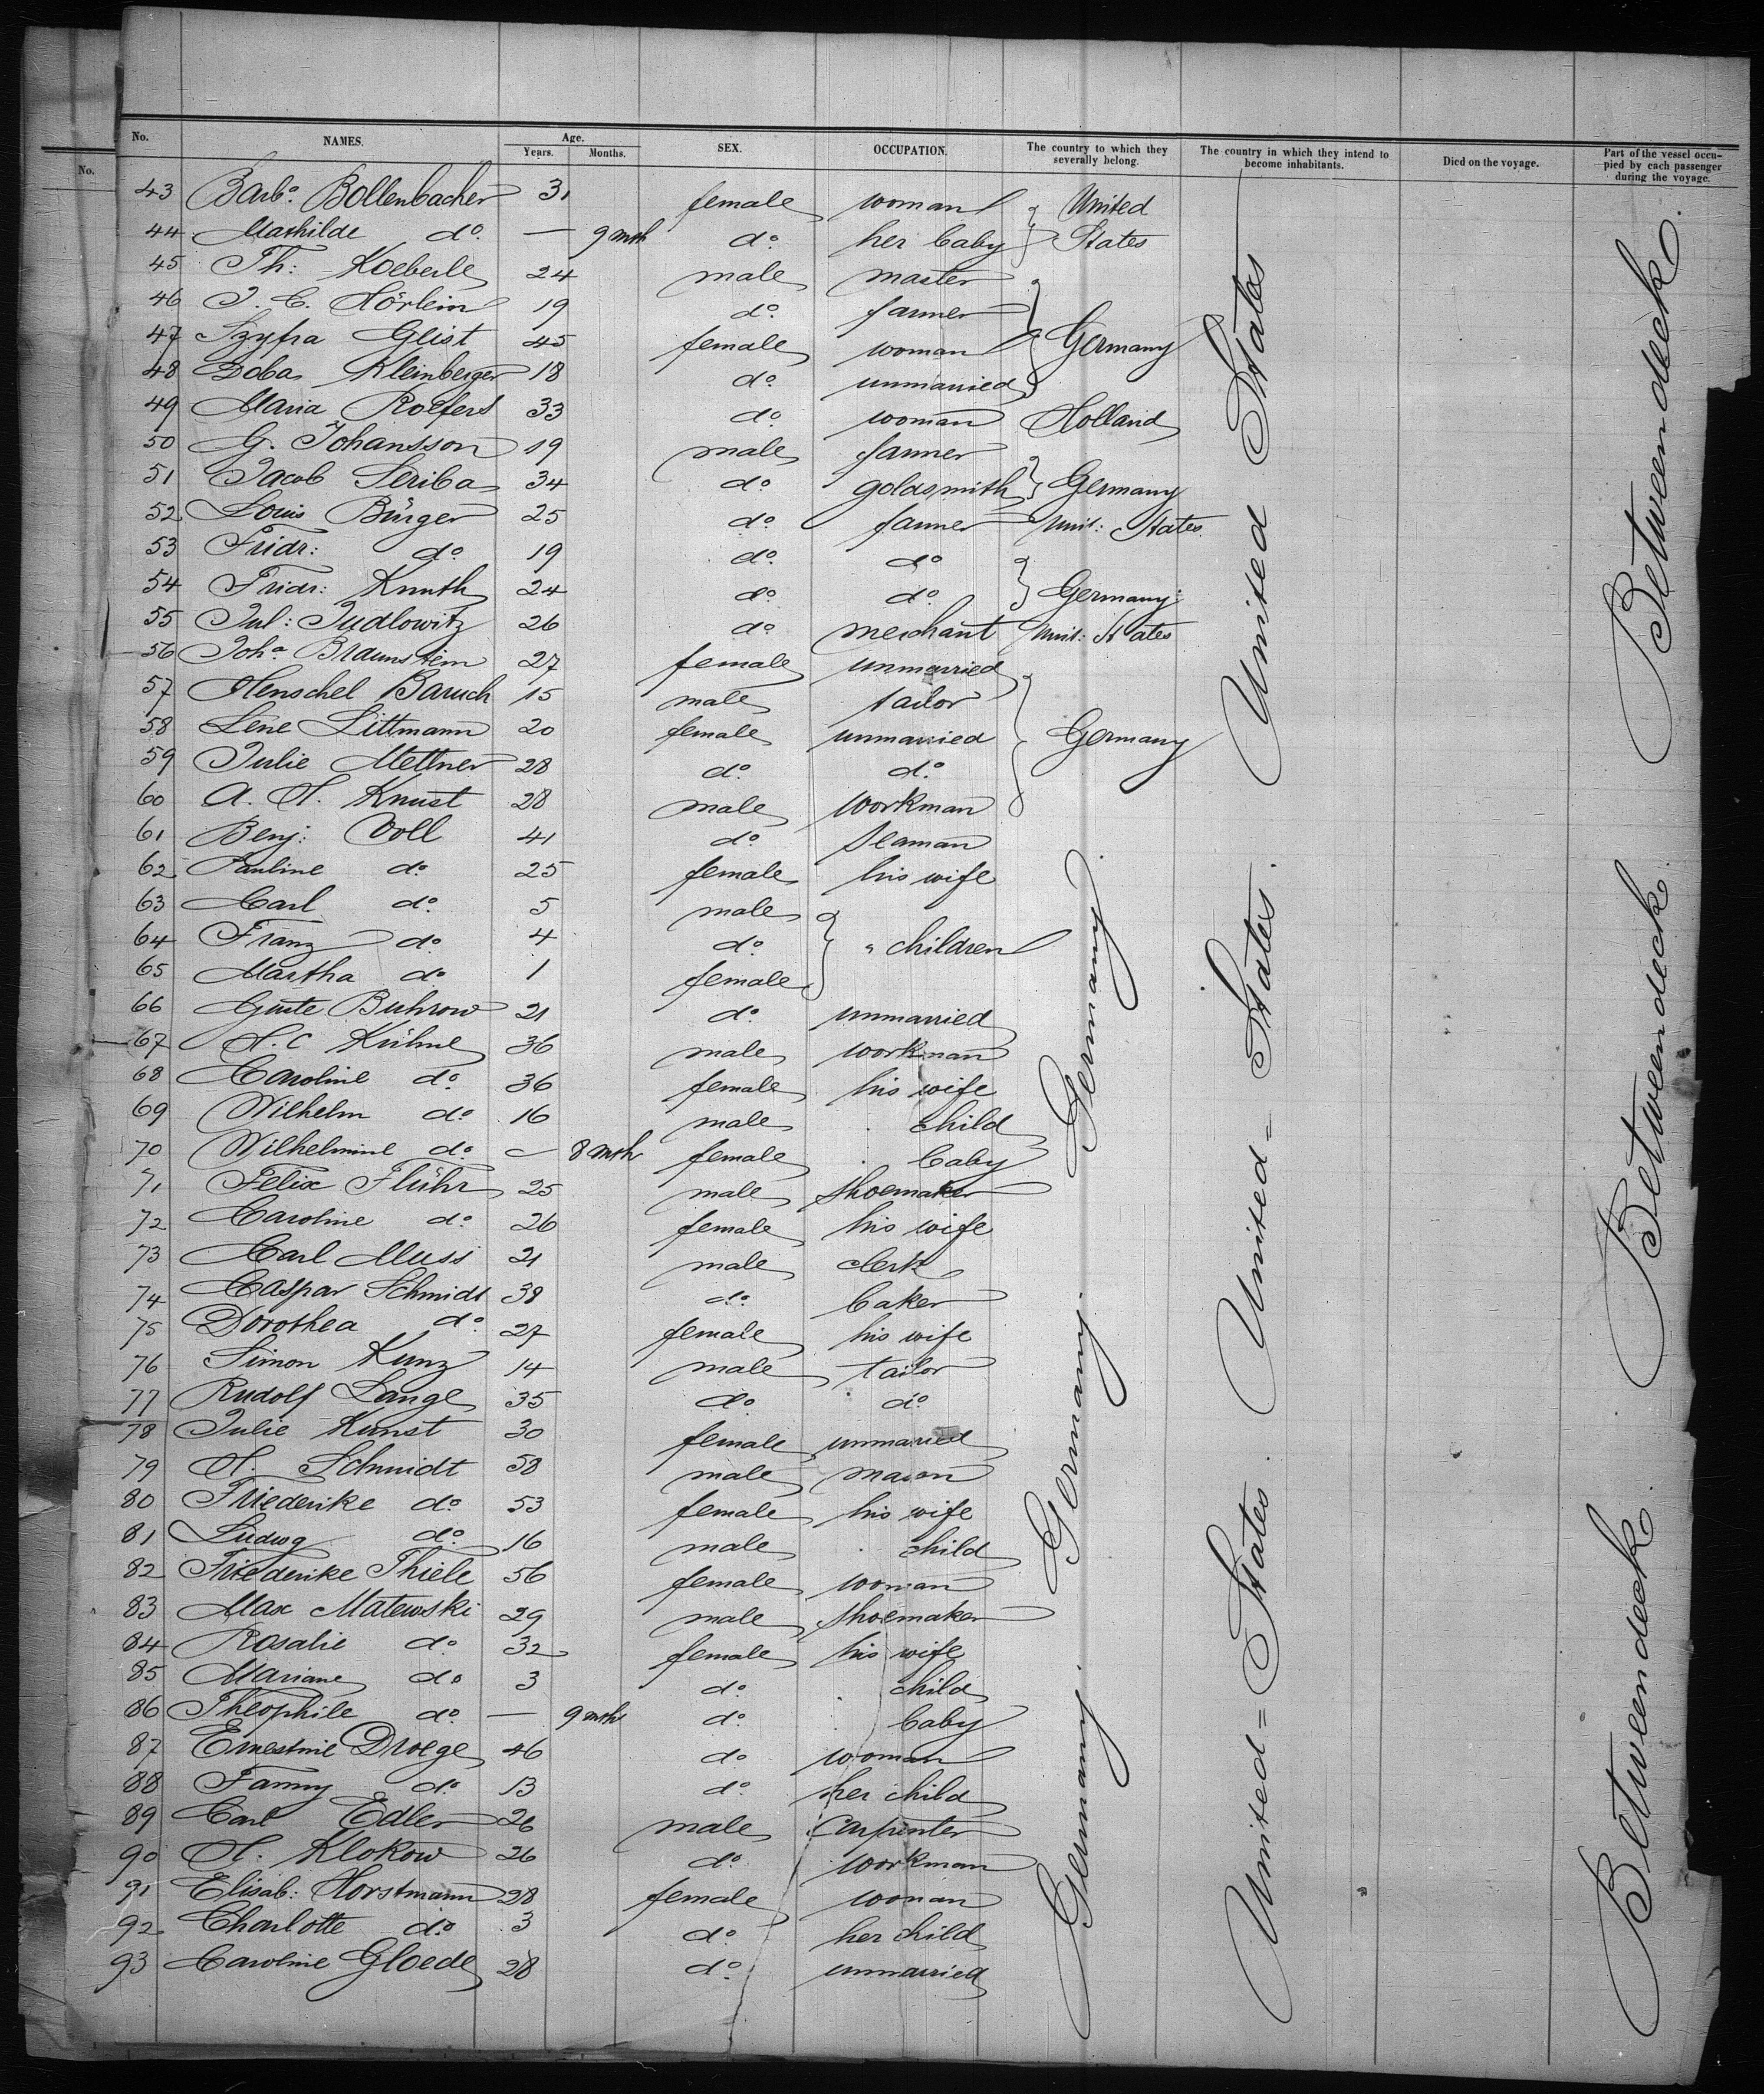 No.
No. NAMES. Age. Years. Months. SEX. OCCUPATION. The country to which they severally belong. The country in which they intend to become inhabitants. Died on the voyage. Part of the vessel occupied by each passenger during the voyage.
43 Barb.a Bollenbacher 31 female woman United
44 Mathilde do. — 9 mth do. her baby States
45 Th: Koeberle 24 male master
46 J. C. Hörlein 19 do. farmer
47 Szyfra Glist 45 female woman Germany
48 Doba Kleinberger 18 do. unmarried
49 Maria Roefers 33 do. woman Holland
50 G. Johansson 19 male farmer
51 Jacob Seriba 34 do. goldsmith Germany
52 Louis Bürger 25 do. farmer Unit: States
53 Fridr: do. 19 do. do.
54 Fridr: Knuth 24 do. do. Germany
55 Jul: Judlowitz 26 do. merchant Unit: States
56 Joh.a Braunstein 27 female unmarried
57 Henschel Baruch 15 male tailor
58 Lene Littmann 20 female unmarried Germany
59 Julie Mettner 28 do. do.
60 A. H. Knust 28 male workman
61 Benj: Voll 41 do. seaman
62 Pauline do. 25 female his wife
63 Carl do. 5 male
64 Franz do. 4 do. " children
65 Martha do. 1 female
66 Guste Buhrow 21 do. unmarried
67 H. C Kühne 36 male workman
68 Caroline do. 36 female his wife
69 Wilhelm do. 16 male child
70 Wilhelmine do. — 8 mth female baby
71 Felix Flühr 25 male shoemaker
72 Caroline do. 26 female his wife
73 Carl Muss 21 male clerk
74 Caspar Schmidt 38 do. baker
75 Dorothea do. 27 female his wife
76 Simon Kunz 14 male tailor
77 Rudolf Lange 35 do. do.
78 Julie Kunst 30 female unmarried
79 H. Schmidt 58 male mason
80 Friederike do. 53 female his wife
81 Ludwg do. 16 male child
82 Friederike Thiele 56 female woman
83 Max Matewski 29 male shoemaker
84 Rosalie do. 32 female his wife
85 Mariane do. 3 do. child
86 Theophile do. — 9 mth do. baby
87 Ernestine Droege 46 do. woman
88 Fanny do. 13 do. her child
89 Carl Edler 26 male carpenter
90 H. Klokow 26 do. workman
91 Elisab: Horstmann 28 female woman
92 Charlotte do. 3 do. her child
93 Caroline Gloede 28 do. unmarried
Germany. Germany. Germany.
United = States. United = States. United States
Betweendeck. Betweendeck. Betweendeck.